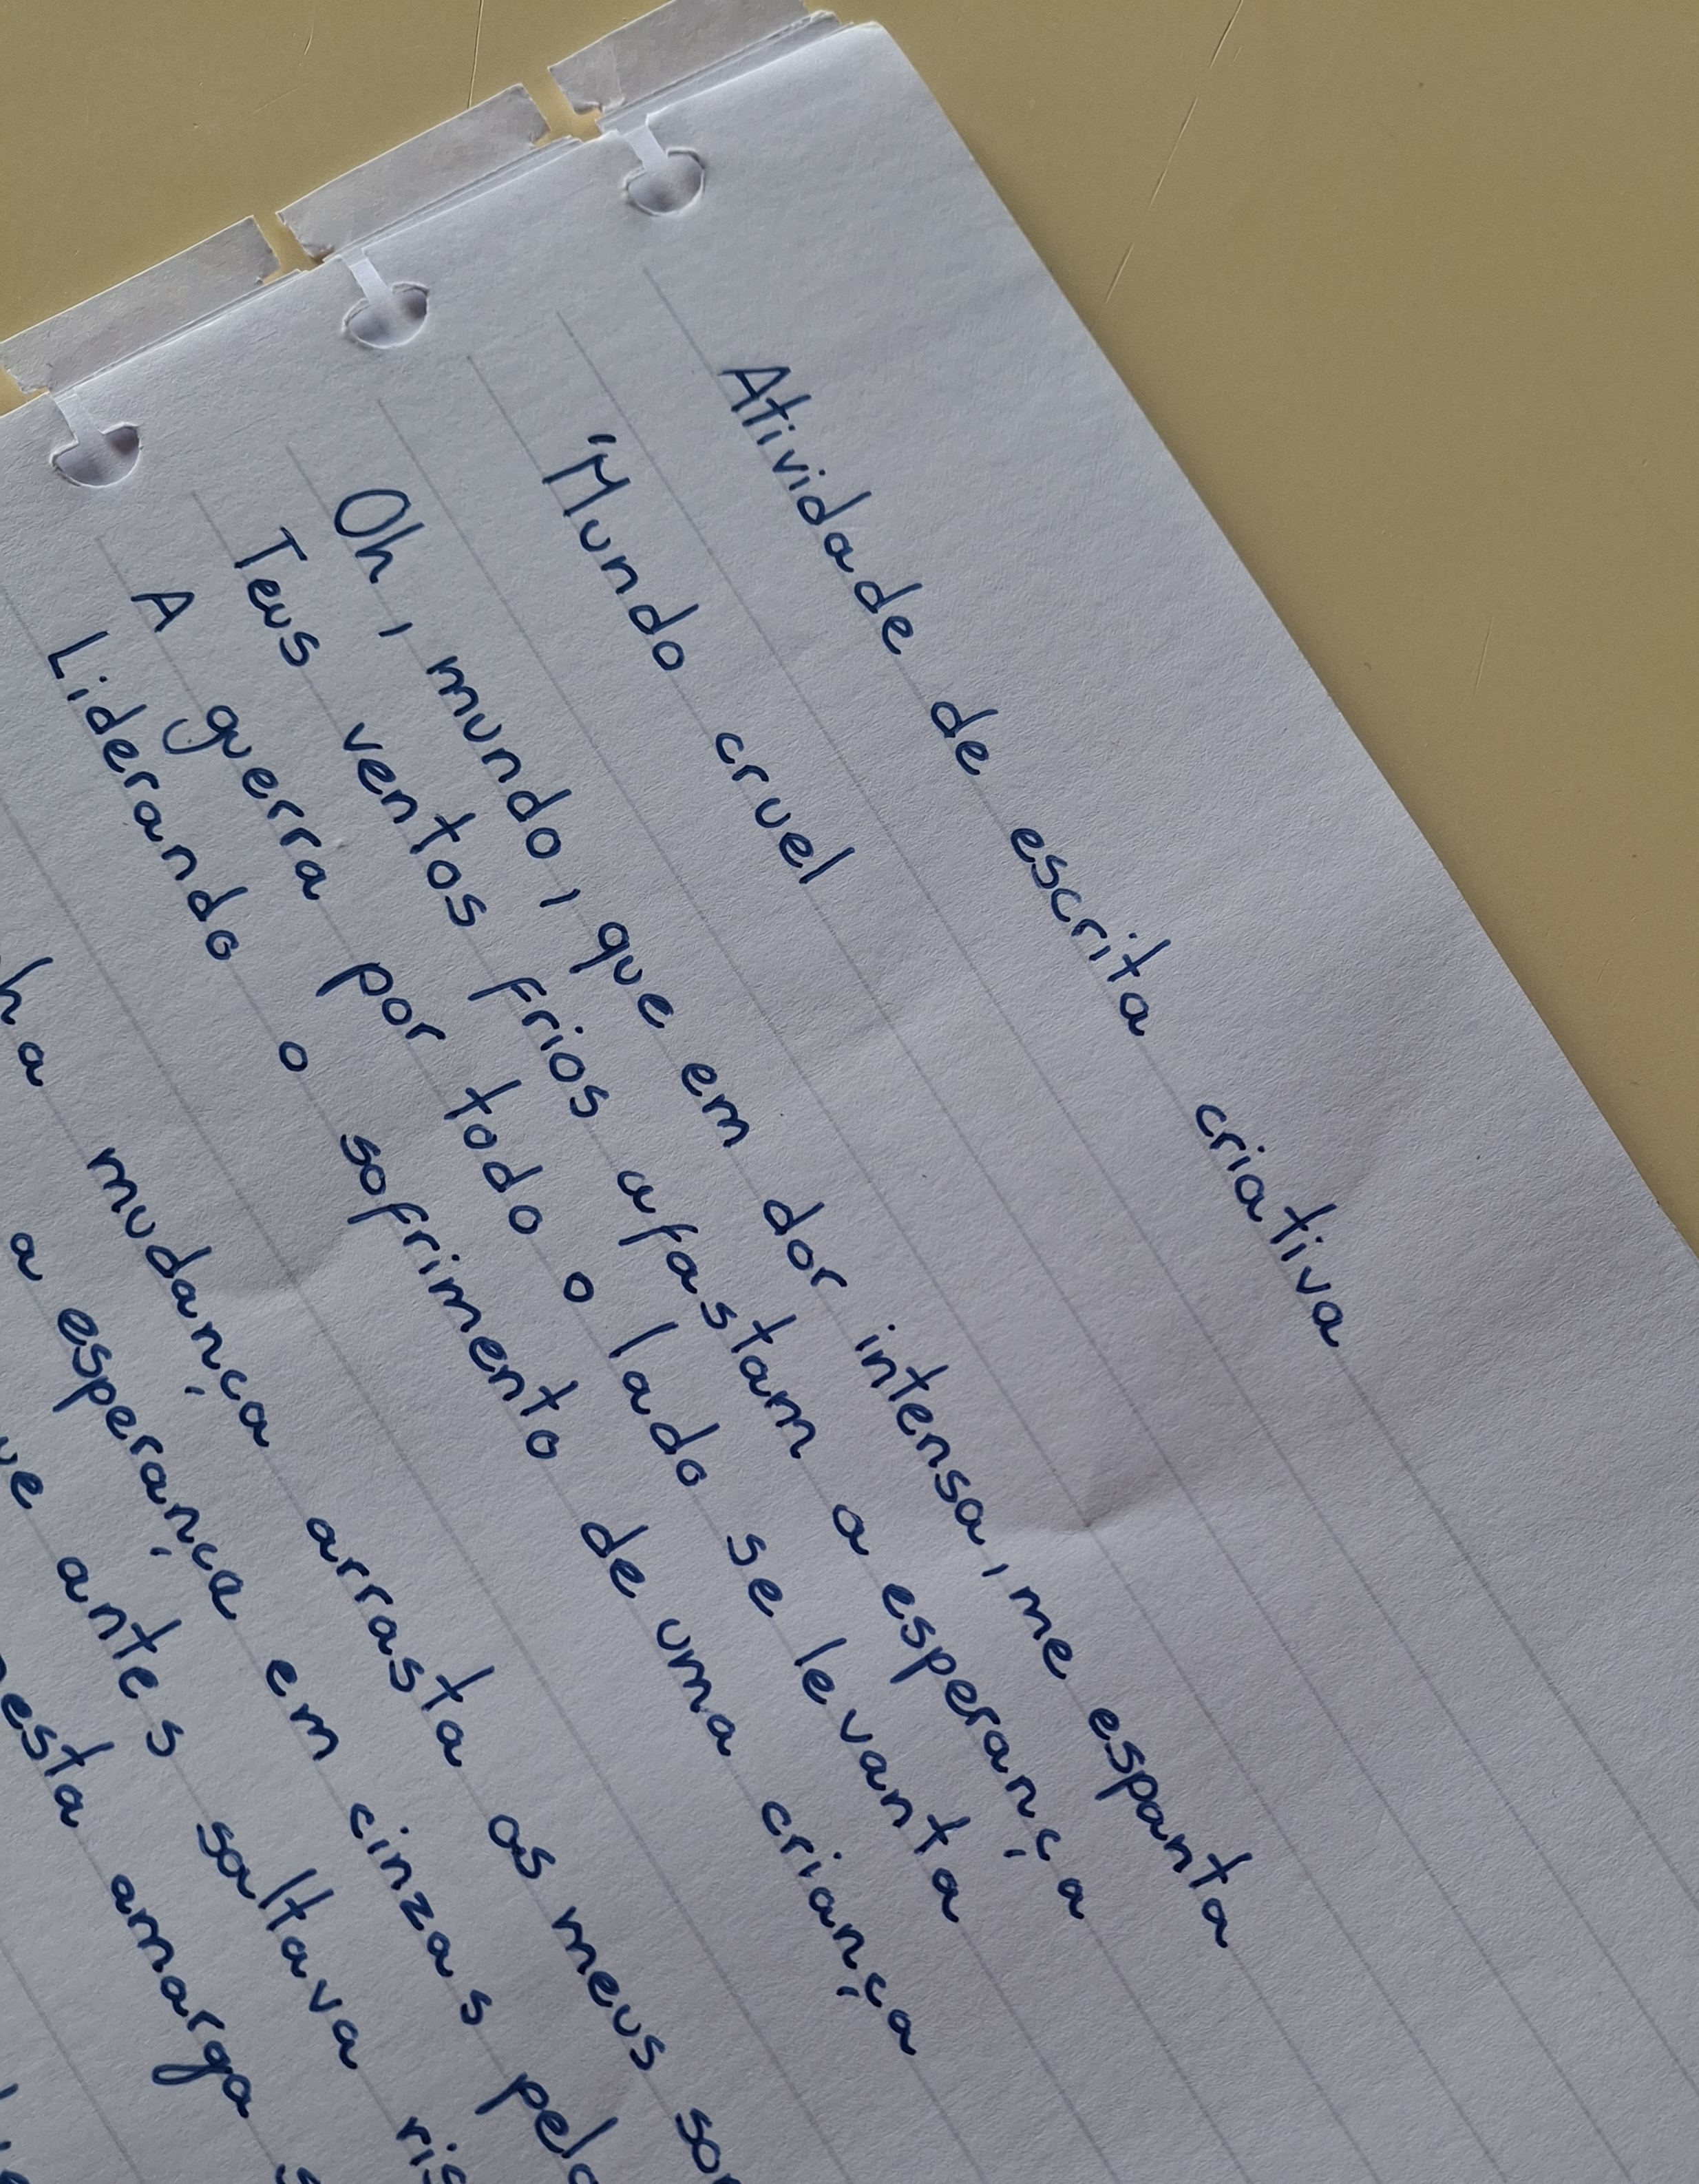 Atividade de escrita criativa
"Mundo cruel
Oh, mundo, que em dor intensa, me espanta
Teus ventos frios afastam a esperança
A guerra por todo o lado se levanta
Liderando o sofrimento de uma criança
mudança arrasta os meus
a esperança em cinzas
antes saltava
amarga